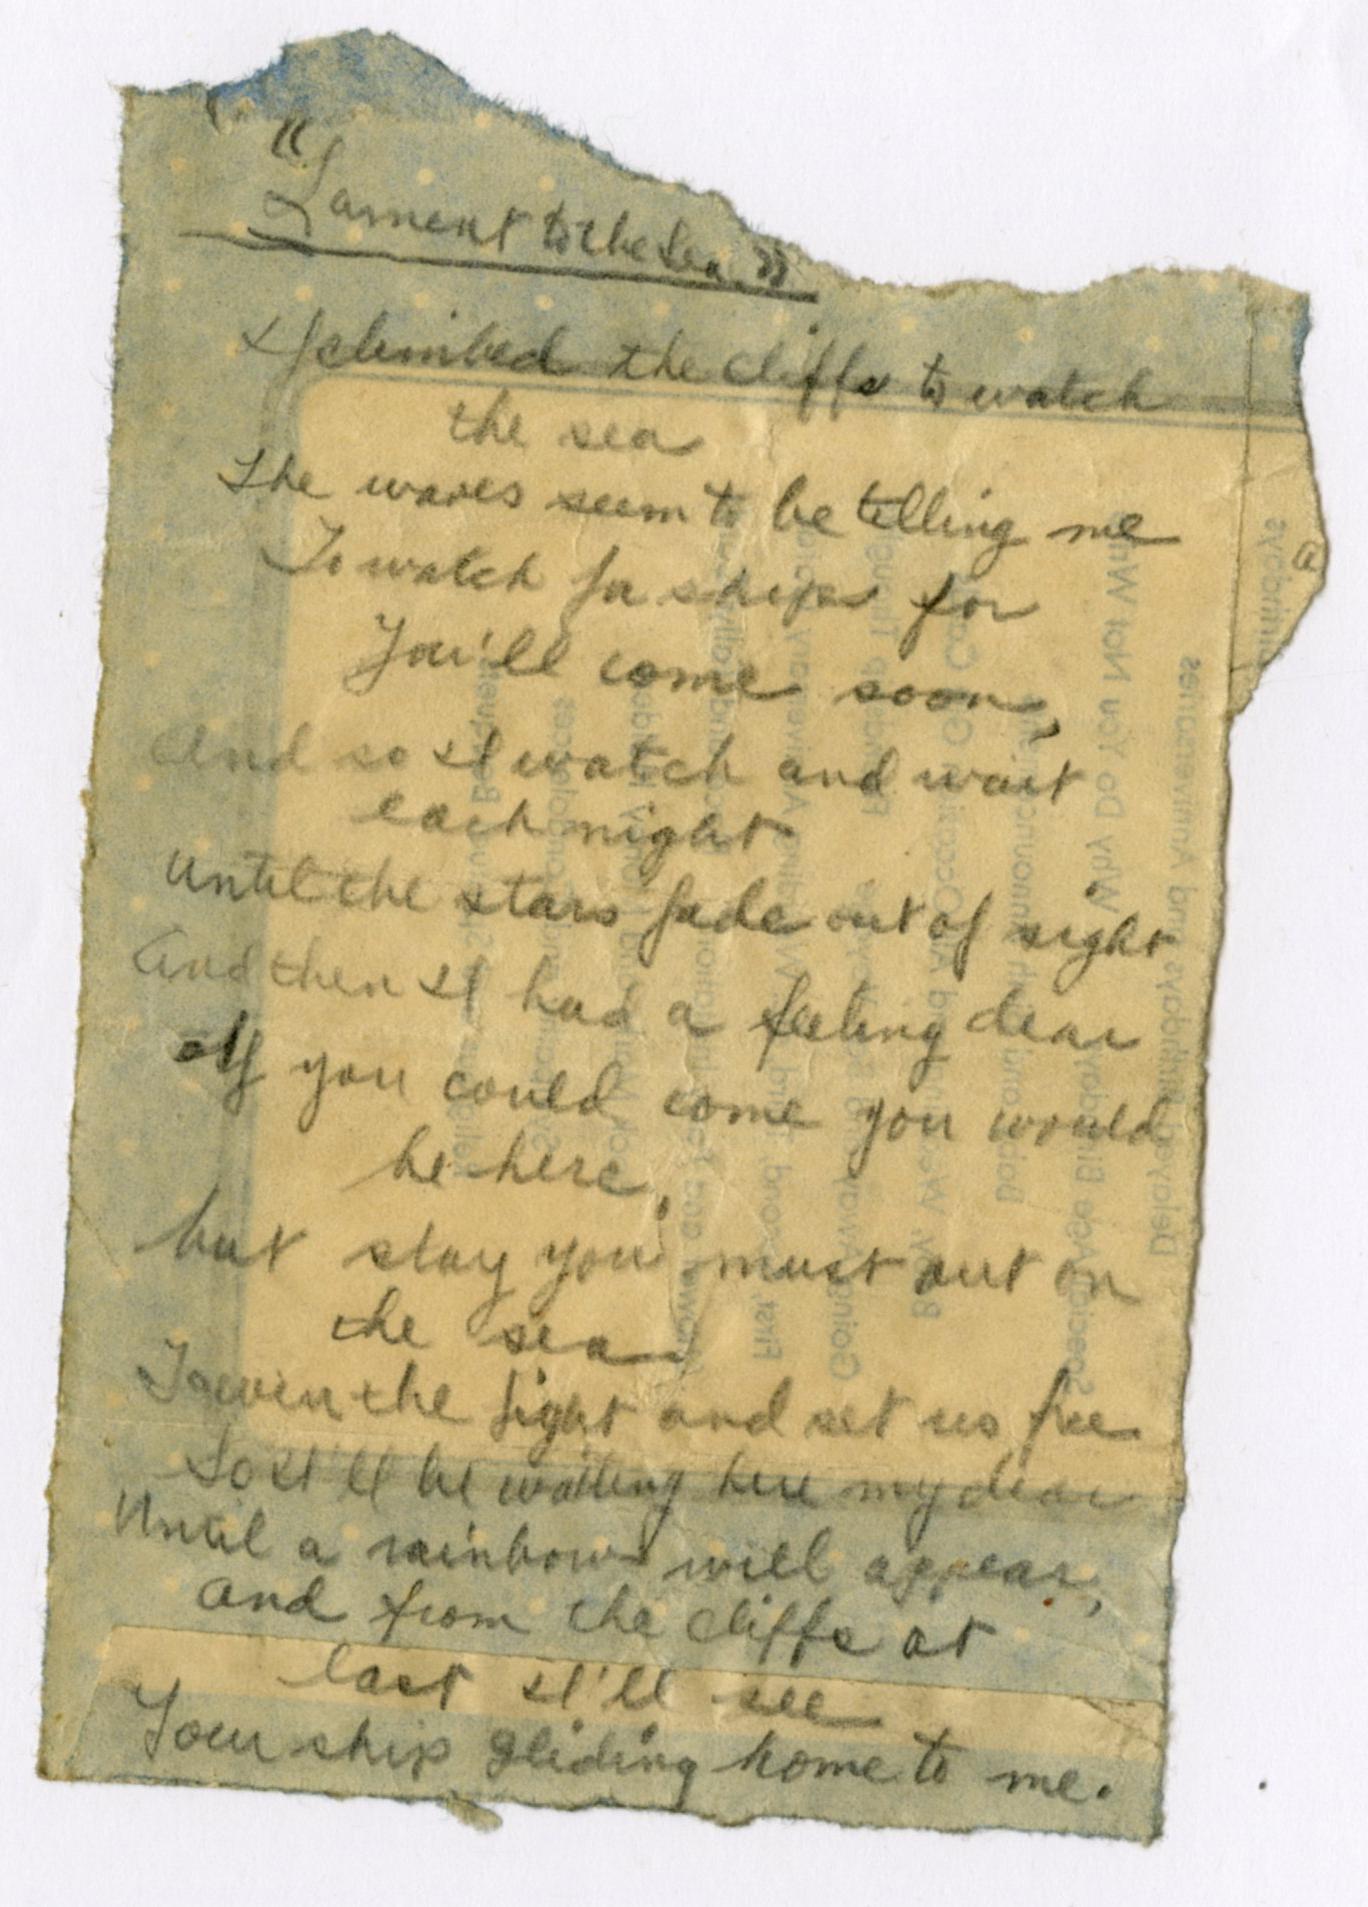 "Lament to the Sea"
I climbed the cliffs to watch
the sea
The waves seem to be telling me
To watch fa ships for
You'll come soon,
And so I watch and wait
each night
Until the stars fade out of sight
And then I had a feeling dear
If you could come you would
be here,
but stay you must out on
the sea
To win the fight and set us free
So I'll be waiting here my dear
Until a rainbow will appear,
And from the cliffs at
last I'll see
Your ship gliding home to me.
Birthdays
Delayed Birthdays and Anniversaries
Why Do You Not Write